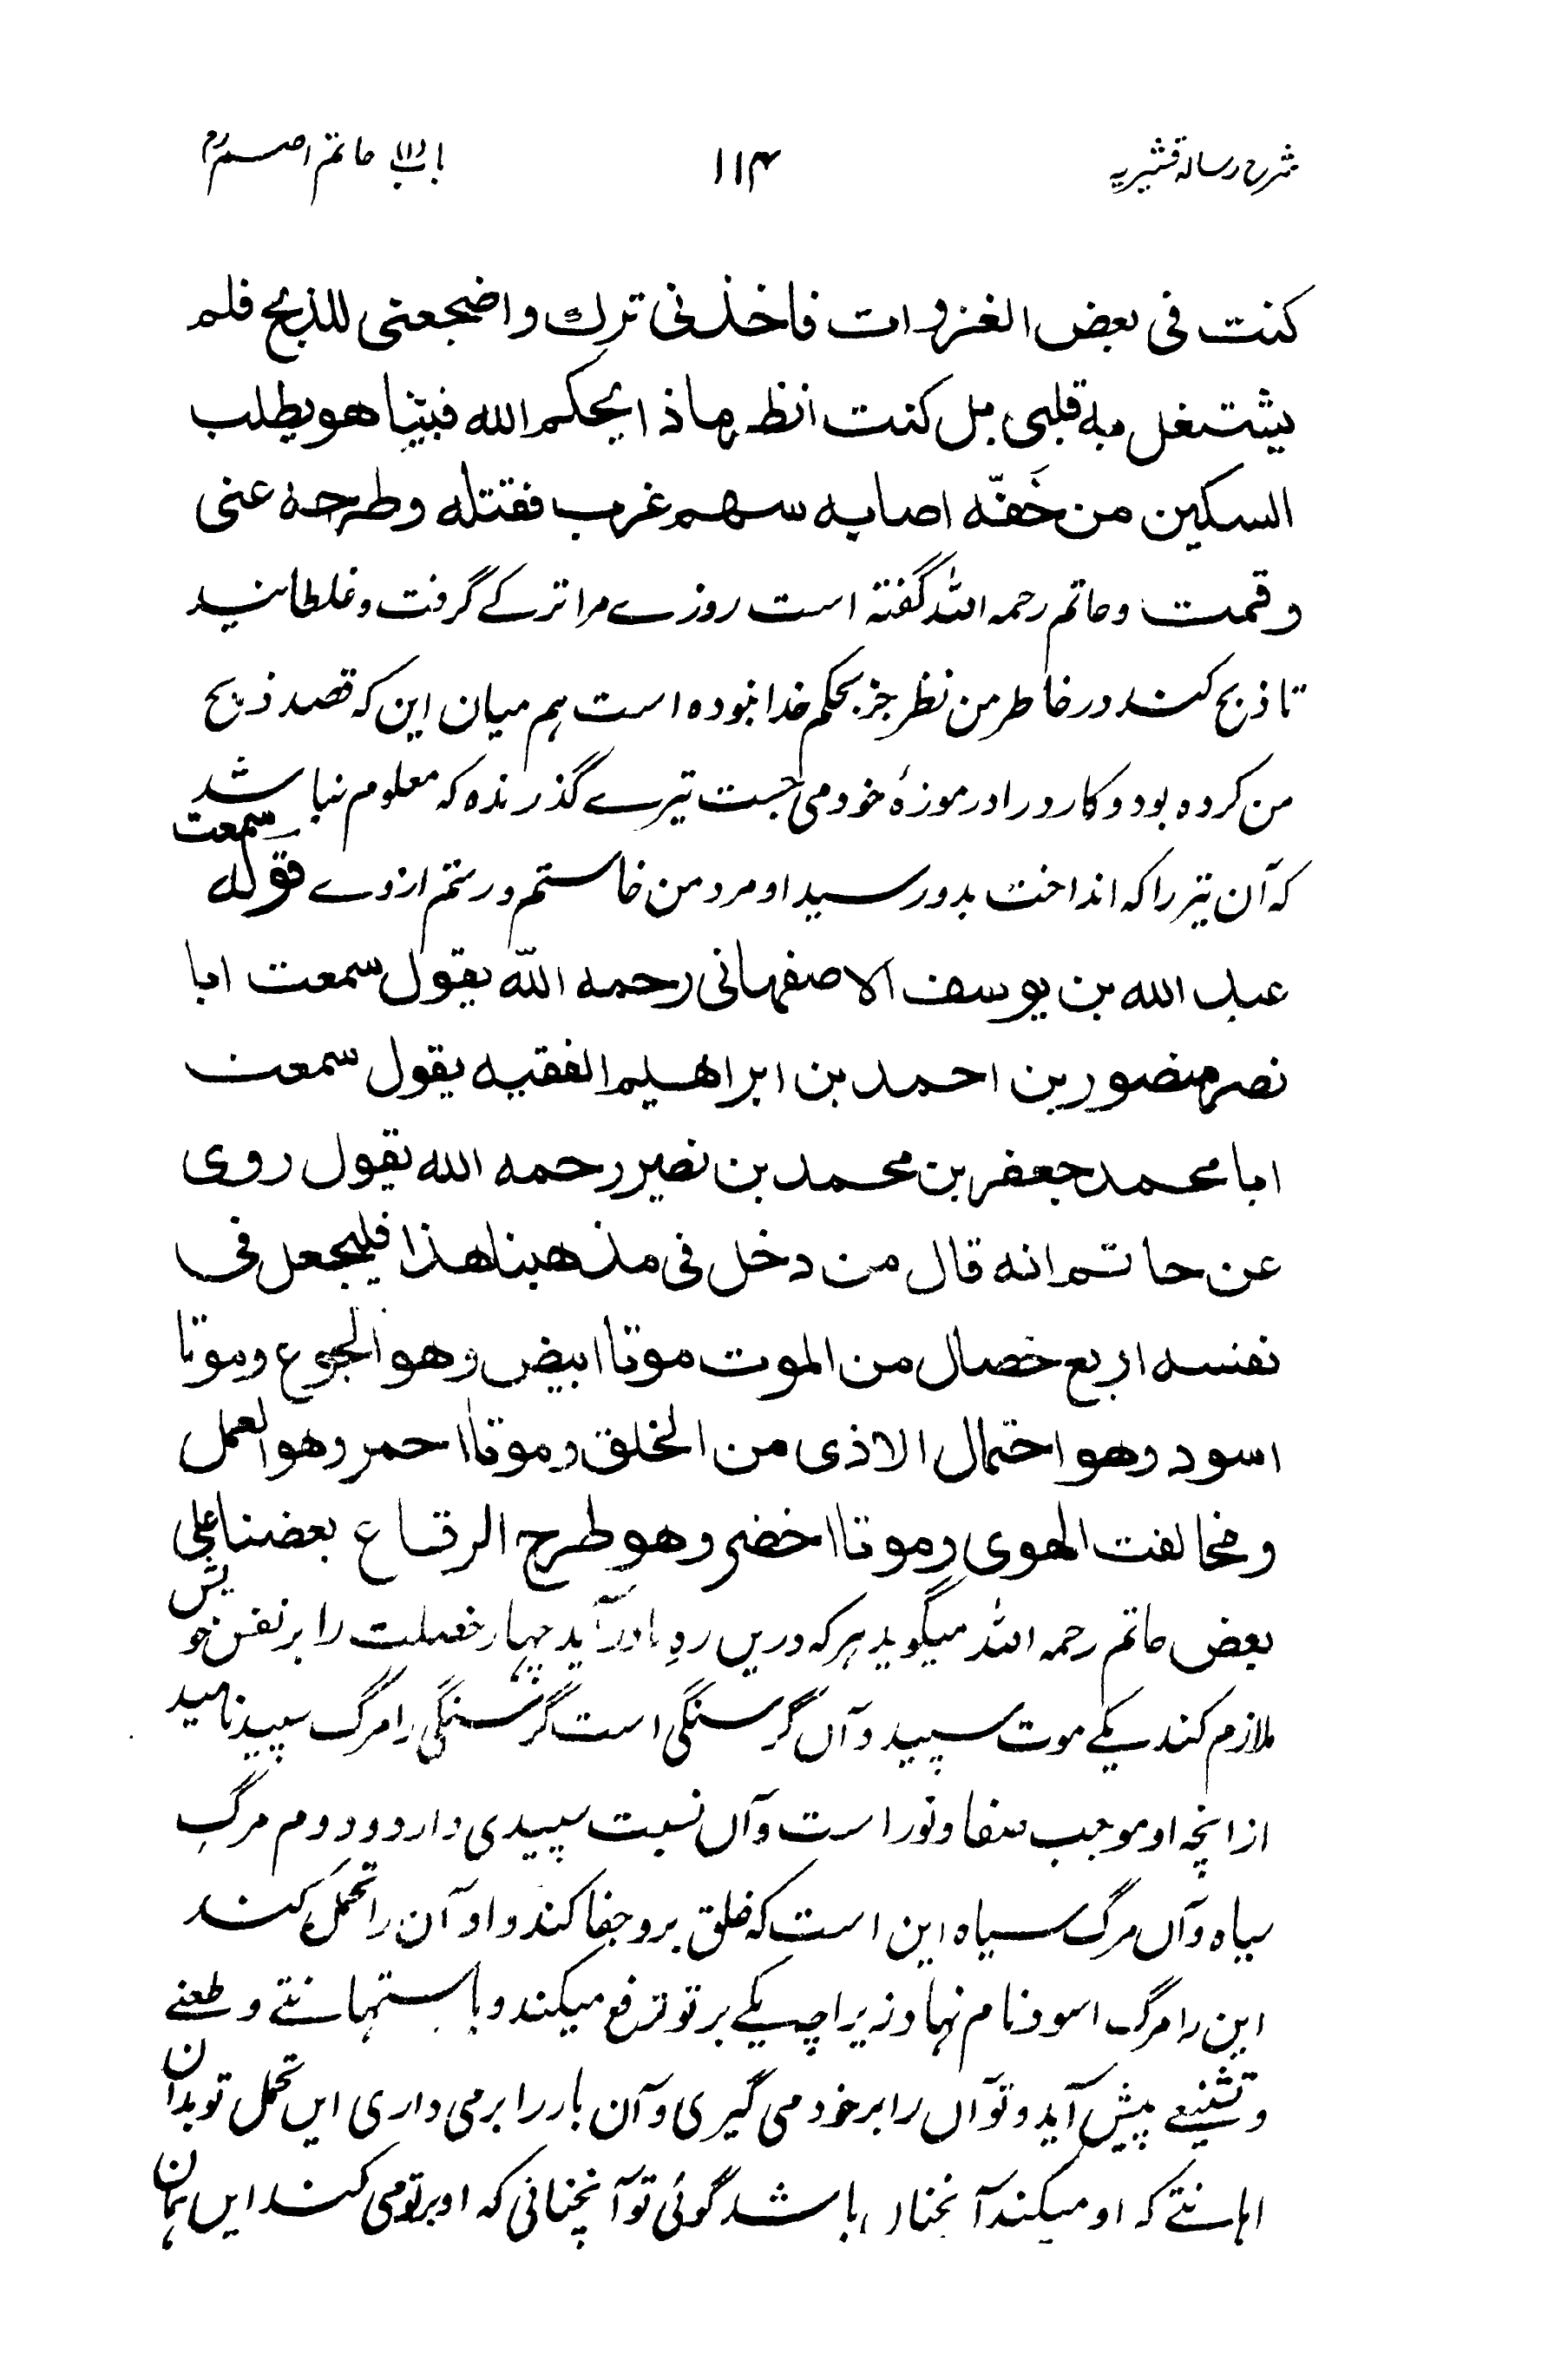 شرح رساله قشیریه
۱۱۴
باب (۱۱) حاتم اصم رح
كنت فى بعض الغزوات فاخذنى ترك واضجعنى للذبح فلم
يشتغل به قلبى بل كنت انظر ماذا يحكم الله فبينا هو يطلب
السكين من خَفّه اصابه سهم غرب فقتله وطرحه عنى
وقمت وحاتم رحمه الله گفته است روزے مرا ترکے گرفت و غلطانید
تا ذبح کند در خاطر من نظر جز بحکم خدا نبوده است هم میان این که قصد ذبح
من کرده بود و کارد را در موزۂ خود می جست تیرے گذرنده که معلوم نباشد
که آن تیر را که انداخت بدو رسید او مرد من خاستم و رستم از وے قوله سمعت
عبد الله بن يوسف الاصفهانى رحمه الله يقول سمعت ابا
نصر منصور بن احمد بن ابراهيم الفقيه يقول سمعت
ابا محمد جعفر بن محمد بن نصير رحمه الله يقول روى
عن حاتم انه قال من دخل فى مذهبنا هذا فليجعل فى
نفسه اربع خصال من الموت موتا ابيض وهو الجوع وموتا
اسود وهو احتمال الاذى من الخلق وموتا احمر وهو العمل
ومخالفت الهوى وموتا اخضر وهو طرح الرقاع بعضنا على
بعض حاتم رحمه الله میگوید هرکه دریں رهِ ما درآید چهار خصلت را بر نفس خویش
ملازم کند یکے موت سپید و آں گرسنگی است گرسنگی را مرگ سپید نامید
ازانچه او موجب صفا و نور است و آں نسبت سپیدی دارد و دوم مرگِ
سیاه و آں مرگ سیاه این است که خلق برو جفا کند و او آن را تحمل کند
این را مرگ اسود نام نهاد زیراچه یکے بر تو ترفع میکند و با استهانتے و طعنے
و تشنیعے پیش آید و تو آں را بر خود می گیری و آن بار را بر می داری ایں تحمل تو بدان
اهانتے که او میکند آنچنان باشد گوئی تو آنچنانی که او بر تو می کند ایں همان